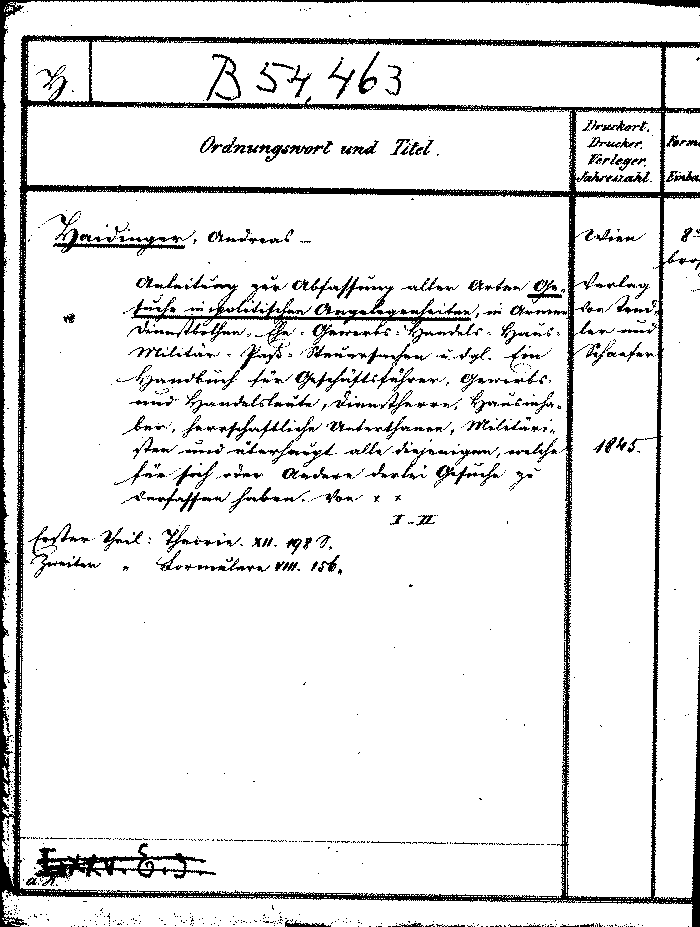 H.
B 54,463
Ordnungswort und Titel.
Druckort.
Drucker.
Verleger.
Jahreszahl.
Form
Einba
Haidinger, Andreas –
Anleitung zur Abfassung aller Arten Ge-
suche in politischen Angelegenheiten, in Armen
Dienstbothen, Ehe- Gewerbs- Handels- Haus-
Militär- Paß- Steuersachen u. dgl. Ein
Handbuch für Geschäftsführer, Gewerbs-
und Handelsleute, Dienstherrn, Hausinha-
ber, herrschaftliche Unterthanen, Militäri-
sten und überhaupt alle diejenigen, welche
für sich oder Andere derlei Gesuche zu
verfassen haben. Von
I-II
Erster Theil: Theorie. XII. 198 S.
Zweiter " Formulare VIII. 156.
Wien
Verlag
von Tend-
ler und
Schaefer
1845.
8°
bro